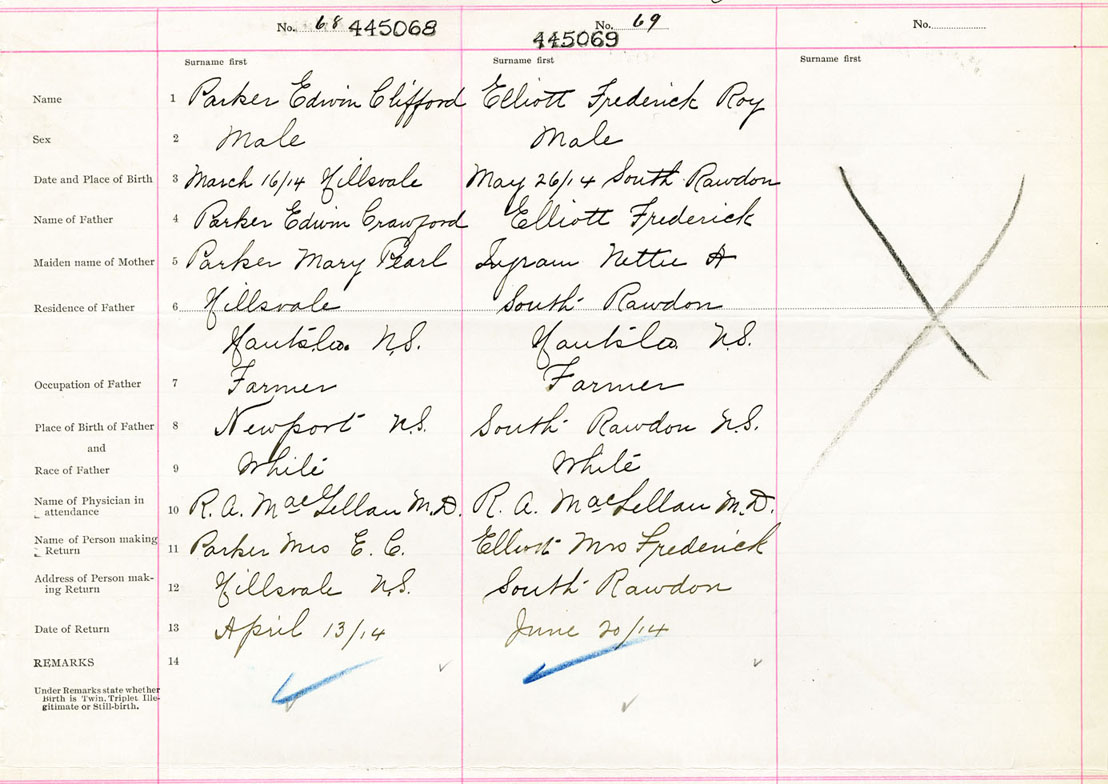 No. 68 445068 No. 69 No.
445069
Surname first Surname first Surname first
Name 1 Parker Edwin Clifford Elliott Frederick Roy
Sex 2 Male Male
Date and Place of Birth 3 March 16/14 Hillsvale May 26/14 South Rawdon
Name of Father 4 Parker Edwin Crawford Elliott Frederick
Maiden name of Mother 5 Parker Mary Pearl Ingram Nettie A
Residence of Father 6 Hillsvale South Rawdon
Hants Co. N.S. Hants Co. N.S.
Occupation of Father 7 Farmer Farmer
Place of Birth of Father 8 Newport N.S. South Rawdon N.S.
and
Race of Father 9 White White
Name of Physician in
attendance 10 R. A. MacLellan M.D. R. A. MacLellan M.D.
Name of Person making
Return 11 Parker Mrs E. C. Elliott Mrs Frederick
Address of Person mak-
ing Return 12 Hillsvale N.S. South Rawdon
Date of Return 13 April 13/14 June 20/14
REMARKS 14
Under Remarks state whether
Birth is Twin, Triplet Ille-
gitimate or Still-birth.